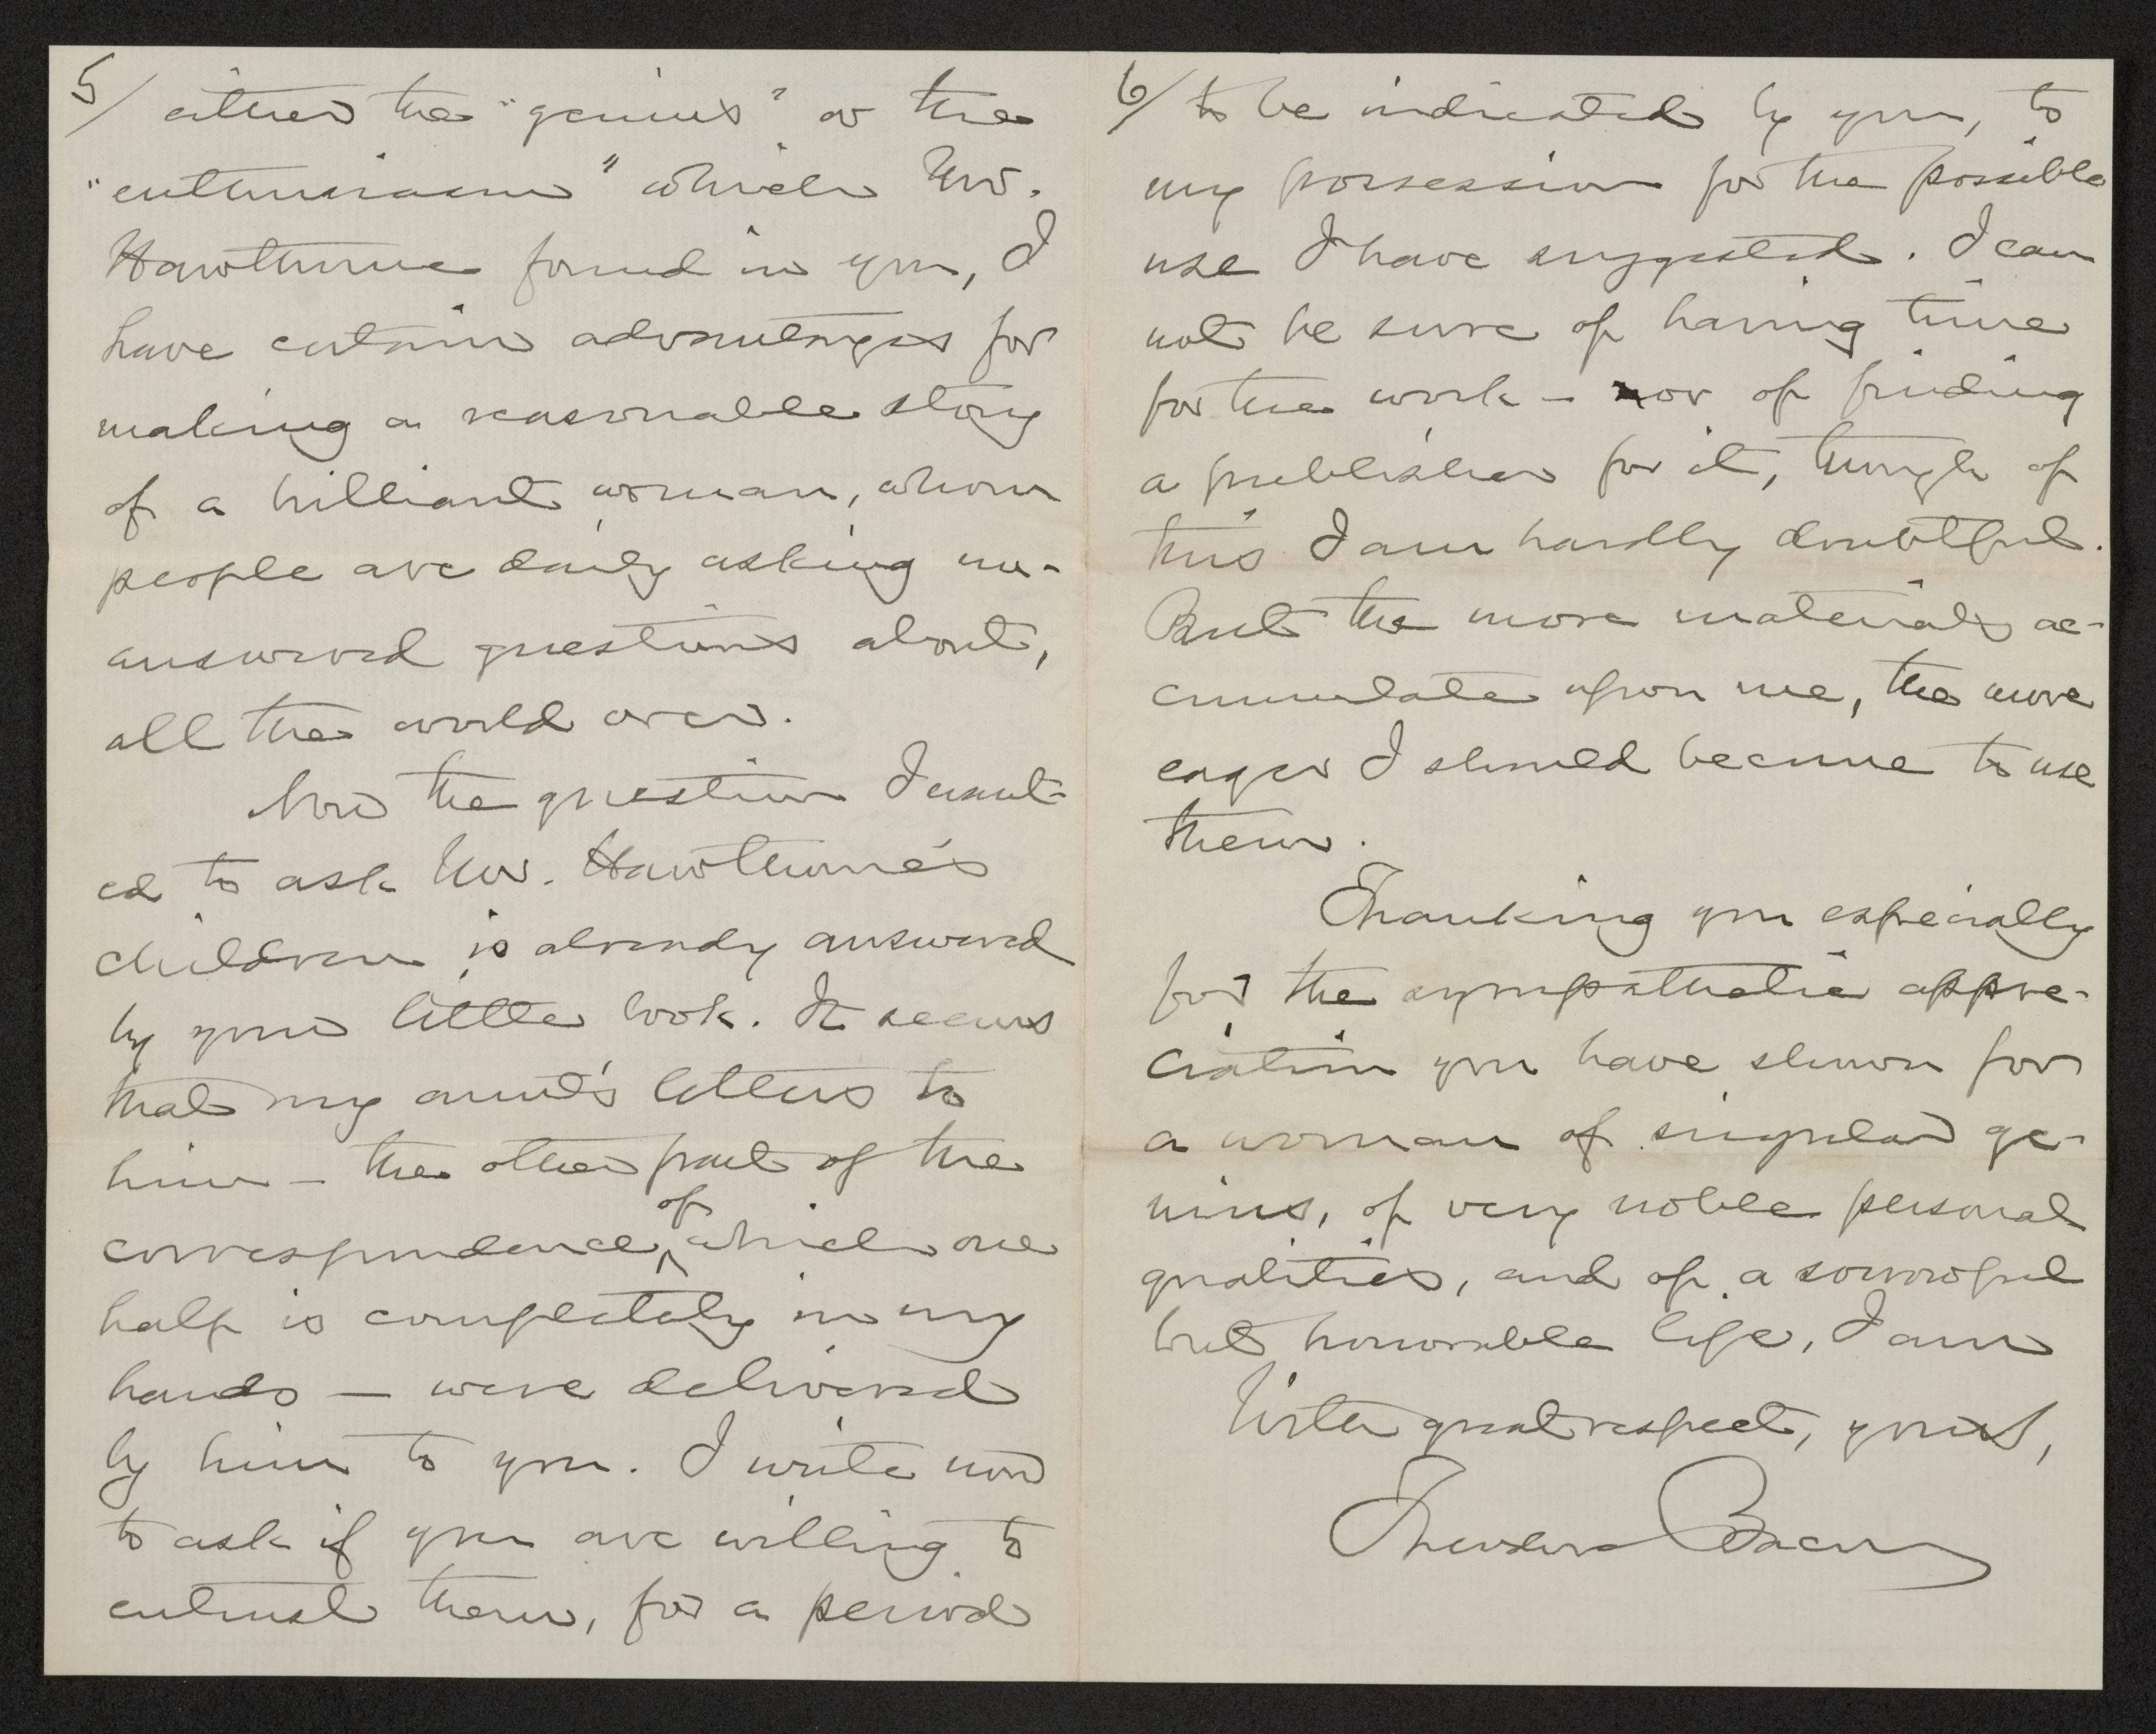 5/ either the "genius" or the
"enthusiasm" which Mr.
Hawthorne found in you, I
have certain advantages for
making a reasonable story
of a brilliant woman, whom
people are daily asking un-
answered questions about,
all the world over.
Now the question I want-
ed to ask Mr. Hawthorne's
children is already answered
by your little book. It seems
that my aunt's letters to
him – the other part of the
correspondence, of which one
half is completely in my
hands – were delivered
by him to you. I write now
to ask if you are willing to
entrust them, for a period
6/ to be indicated by you, to
my possession for the possible
use I have suggested. I can
not be sure of having time
for the work – nor of finding
a publisher for it, though of
this I am hardly doubtful.
But the more materials ac-
cumulate upon me, the more
eager I should become to use
them.
Thanking you especially
for the sympathetic appre-
ciation you have shown for
a woman of singular ge-
nius, of very noble personal
qualities, and of a sorrowful
but honorable life, I am
With great respect, yours,
Theodore Bacon